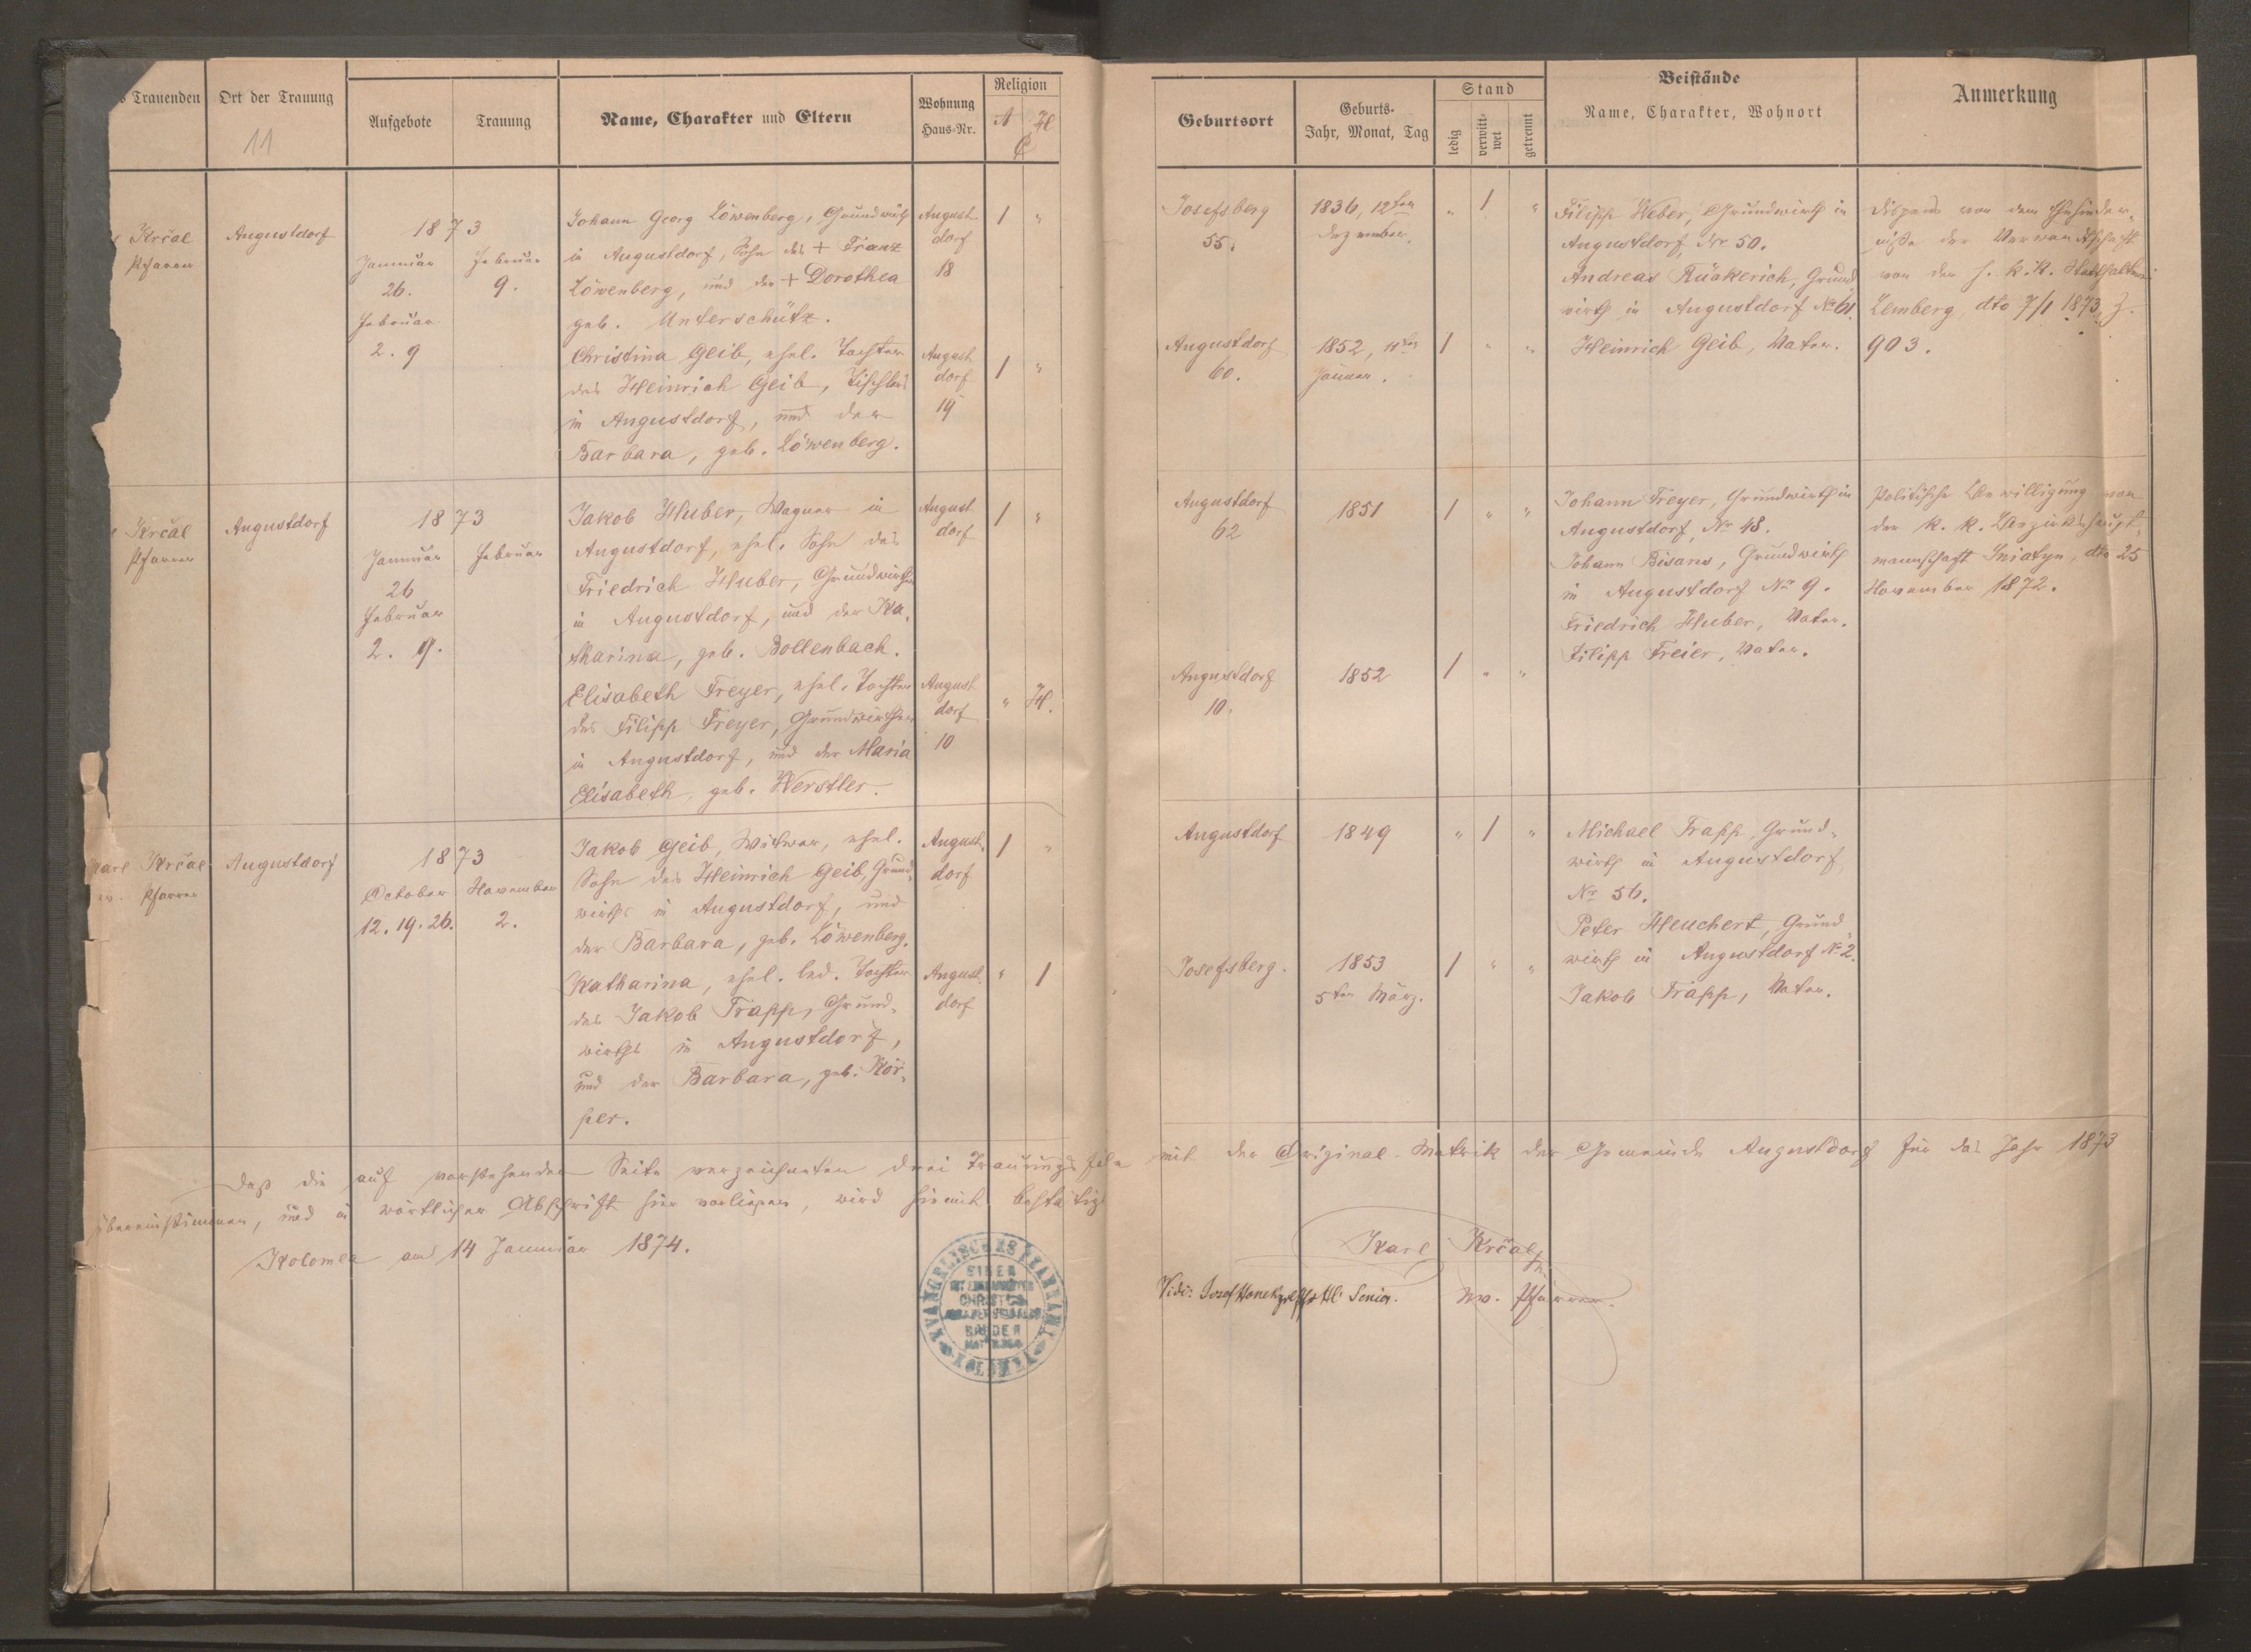 s Trauenden
Ort der Trauung
11
Aufgebote
Trauung
Name, Charakter und Eltern
Wohnung
Haus-Nr.
Religion
A H
C
Geburtsort
Geburts-
Jahr, Monat, Tag
Stand
ledig
verwitt-
wet
getrennt
Beistände
Name, Charakter, Wohnort
Anmerkung
Krčal
Pfarrer
Augustdorf
1873
Jannuar
26.
Februar
2. 9
Februar
9.
Johann Georg Löwenberg, Grundwirth
in Augustdorf, Sohn des + Franz
Löwenberg, und der + Dorothea
geb. Unterschütz.
August
dorf
18
1 "
Christina Geib, ehel. Tochter
des Heinrich Geib, Tischlers
in Augustdorf, und der
Barbara, geb. Löwenberg.
August
dorf
19
1 "
Josefsberg
55.
1836, 12ten
Dezember.
" 1 "
Augustdorf
60.
1852, 11ten
Januar.
1 " "
Filipp Weber, Grundwirth in
Augustdorf, Nr 50.
Andreas Rückerich, Grund
wirth in Augustdorf No 61.
Heinrich Geib, Vater.
Dispens von dem Ehehinder-
niße der Verwandtschaft
von der h. k. k. Statthalterei
Lemberg, dto 7/1 1873, Z.
903.
Krčal
Pfarrer
Augustdorf
1873
Jannuar
26
Februar
2. 9.
Februar
Jakob Huber, Wagner in
Augustdorf, ehel. Sohn des
Friedrich Huber, Grundwirthen
in Augustdorf, und der Ka-
tharina, geb. Bollenbach.
August
dorf
1 "
Elisabeth Freyer, ehel. Tochter
des Filipp Freyer, Grundwirthen
in Augustdorf, und der Maria
Elisabeth, geb. Werstler.
August
dorf
10
" H.
Augustdorf
62
1851
1 " "
Augustdorf
10.
1852
1 " "
Johann Freyer, Grundwirth in
Augustdorf, Nr 48.
Johann Bisanz, Grundwirth
in Augustdorf No 9.
Friedrich Huber, Vater.
Filipp Freier, Vater.
Politische Bewilligung von
der k. k. Bezirkshaupt-
mannschaft Sniatyn, dto 25
November 1872.
Karl Krčal
ev. Pfarrer
Augustdorf
1873
October
12. 19. 26.
November
2.
Jakob Geib, Witwer, ehel.
Sohn des Heinrich Geib, Grund-
wirths in Augustdorf, und
der Barbara, geb. Löwenberg.
August-
dorf
1 "
Katharina, ehel. led. Tochter
des Jakob Trapp, Grund-
wirths in Augustdorf,
und der Barbara, geb. Kör-
per.
August.
dorf
" 1
Augustdorf
1849
" 1 "
Josefsberg.
1853
5ten März.
1 " "
Michael Trapp, Grund-
wirth in Augustdorf,
No 56.
Peter Heuchert, Grund-
wirth in Augustdorf No 2.
Jakob Trapp, Vater.
Daß die auf vorstehender Seite verzeichneten drei Trauungsfälle mit der Original-Matrik der Gemeinde Augustdorf für das Jahr 1873
übereinstimmen, und in wörtlicher Abschrift hier vorliegen, wird hiemit bestätigt
Kolomea am 14 Jannuar 1874.
Karl Krčal
ev. Pfarrer.
Vidi: Senior.
EVANGELISCHES PFARRAMT
EINER
CHRISTUS